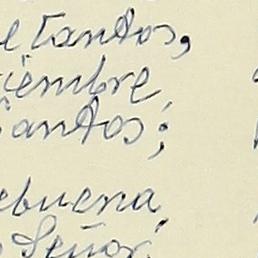 e tantos,
iembre
antos;
ebuena
Señor